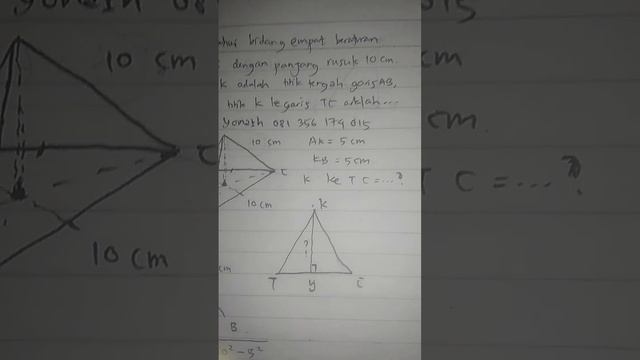 bidang empat beraturan
dengan panjang rusuk 10 cm.
k adalah titik tengah garis AB,
titik k ke garis TC adalah ...
081 356 174 015
10 cm
C
10 cm
AK = 5 cm
KB = 5 cm
k ke T C = ... ?
K
?
T
y
C
cm
B
10 cm
10 cm
C
015
cm.
T C = ... ?